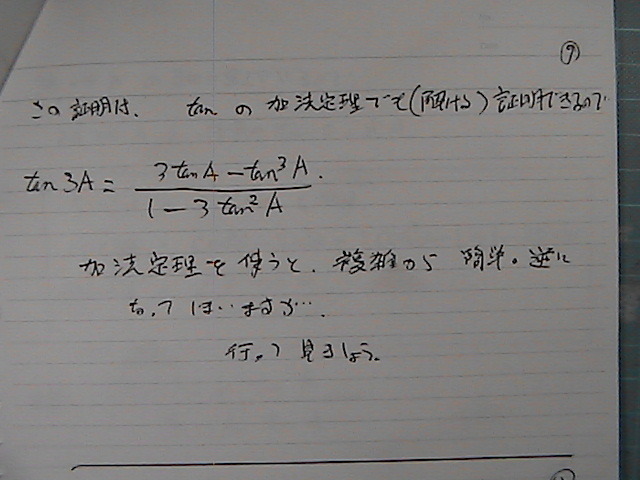 ⑨
この証明は、 tan の 加法定理でも(解ける)証明できるので
tan 3A = \frac{3 tan A - tan^3 A}{1 - 3 tan^2 A}.
加法定理を使うと、複雑から 簡単。逆に
なっては‥ますが‥.
行って見ましょう。